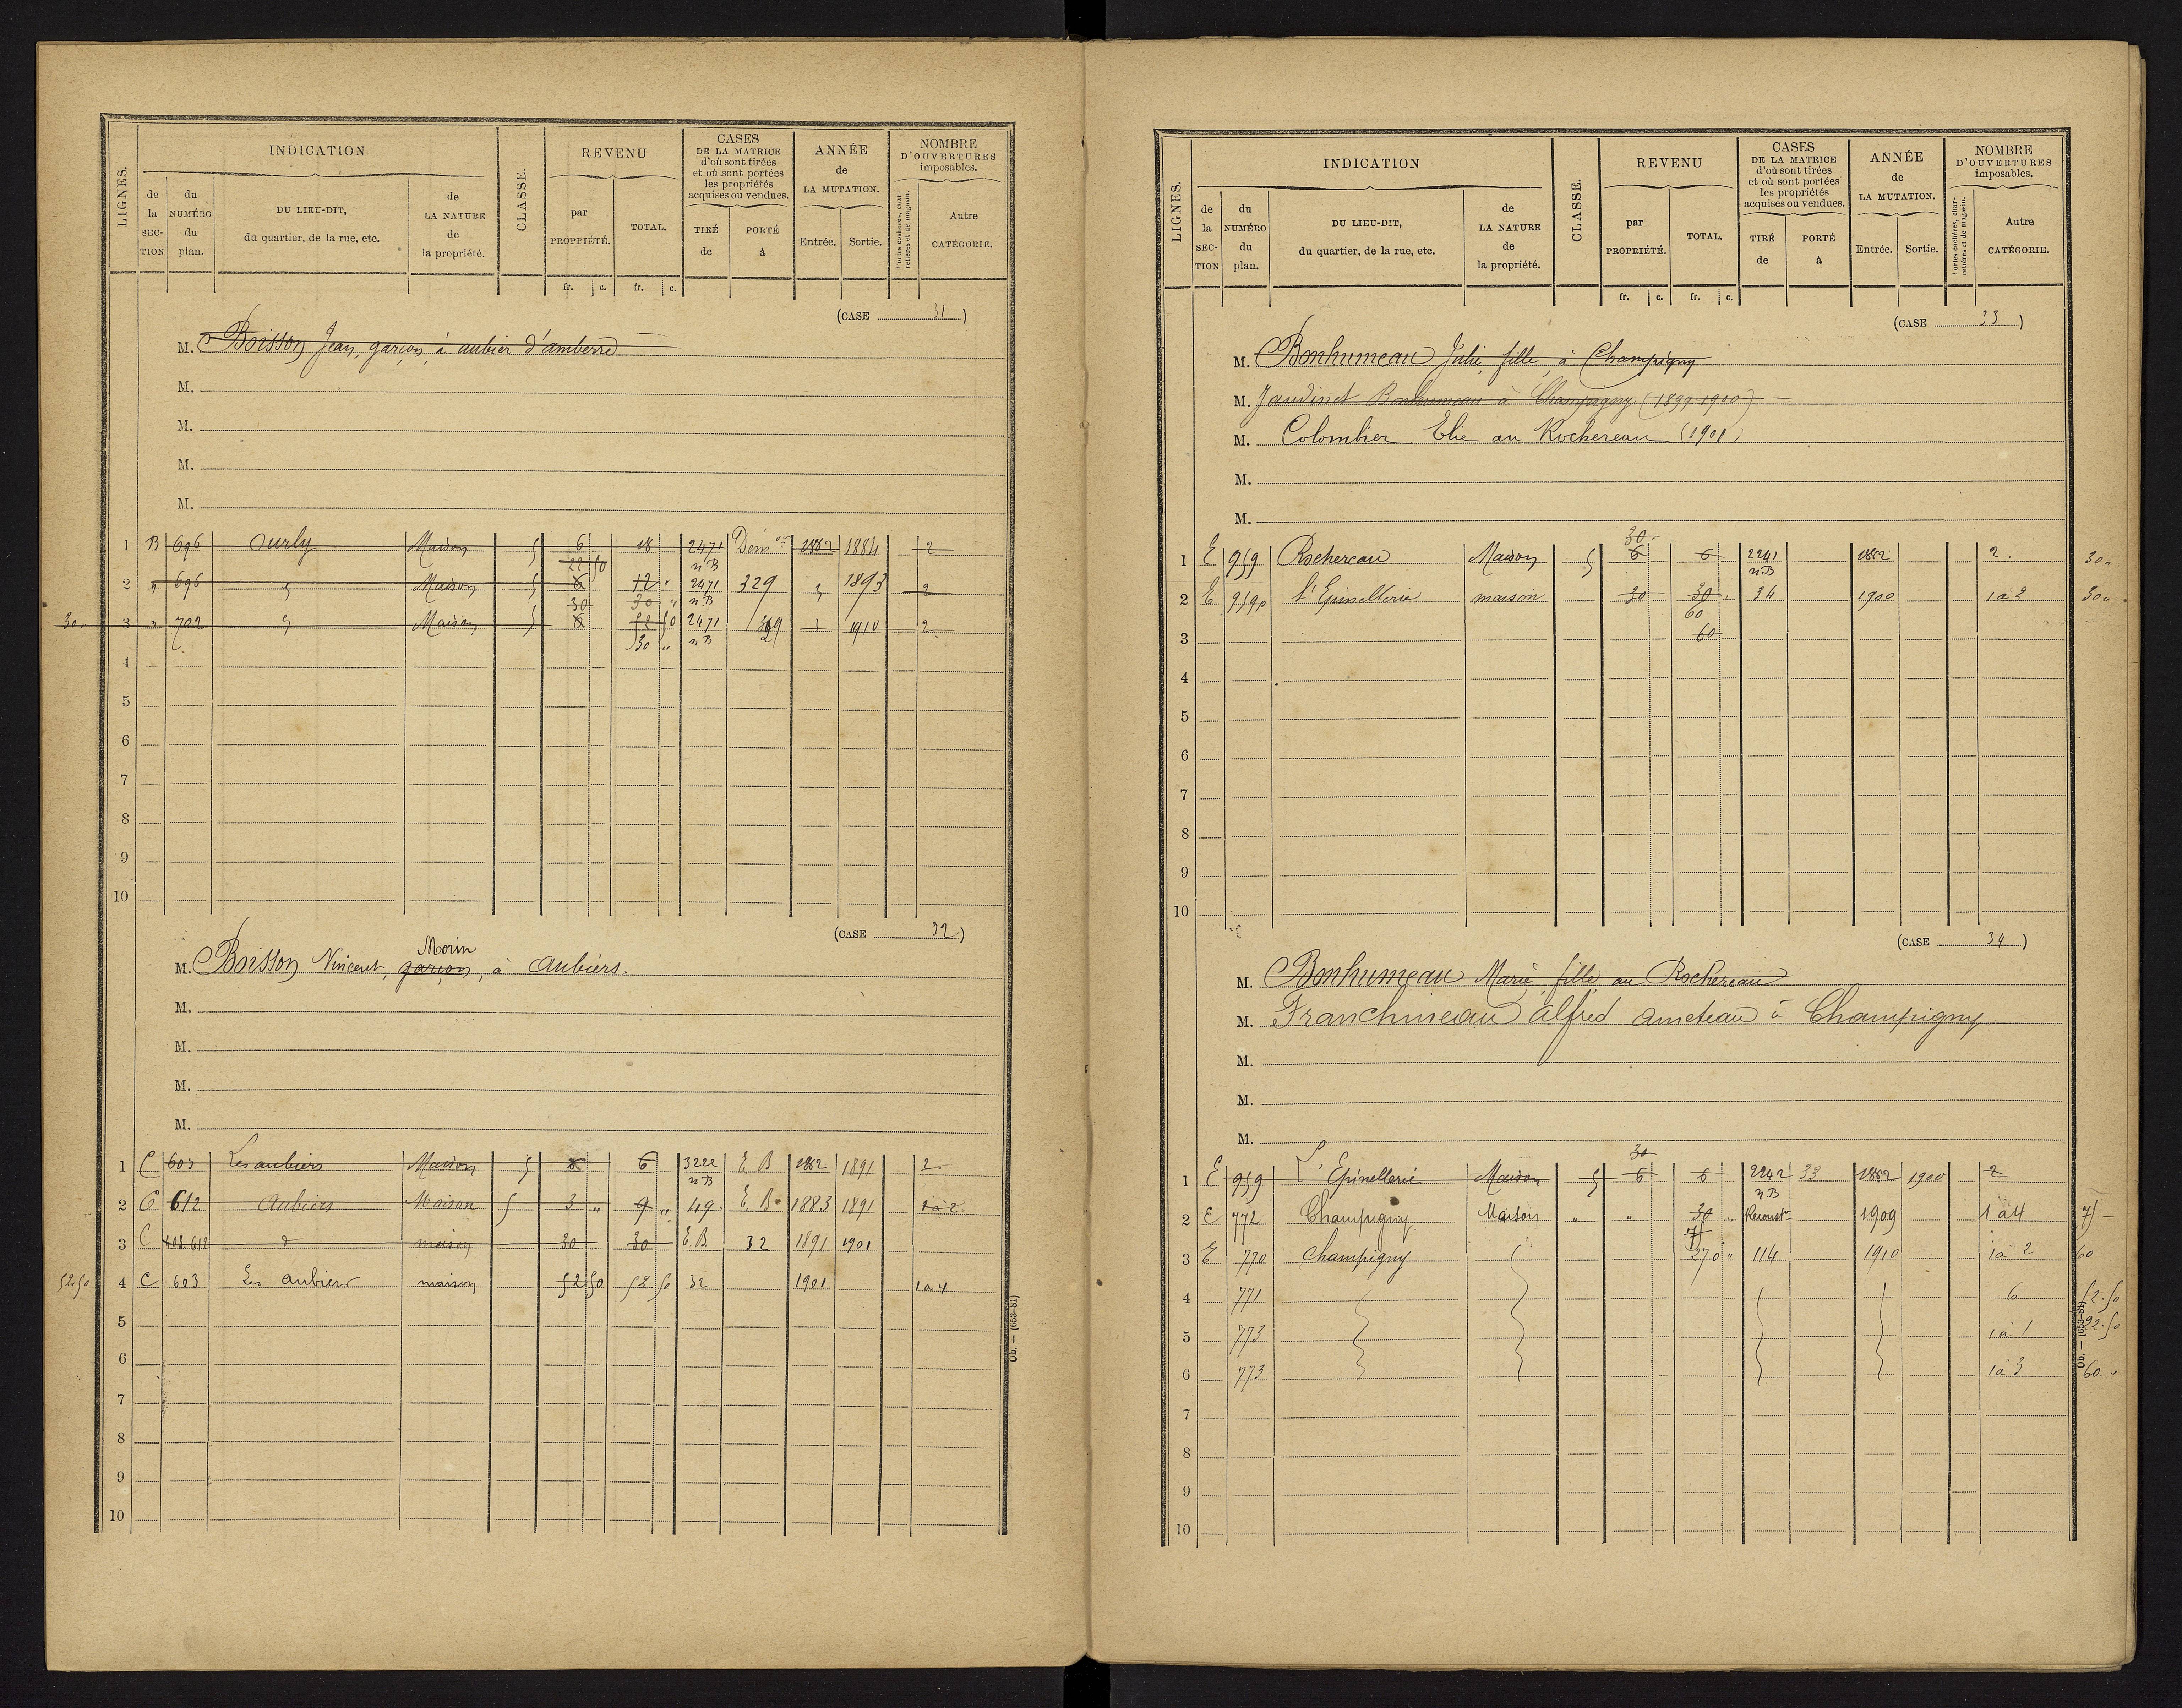 LIGNES.
INDICATION
CLASSE.
REVENU
CASES
DE LA MATRICE
d'où sont tirées
et où sont portées
les propriétés
acquises ou vendues.
ANNÉE
de
LA MUTATION.
NOMBRE
D'OUVERTURES
imposables.
de la SECTION
du NUMÉRO du plan.
DU LIEU-DIT,
du quartier, de la rue, etc.
de LA NATURE de la propriété.
par PROPRIÉTÉ.
TOTAL.
TIRÉ de
PORTÉ à
Entrée.
Sortie.
Portes cochères, charretières et de magasin.
Autre CATÉGORIE.
fr. c. fr. c.
(CASE 31)
M. Boisson Jean, garçon, à aubier d'amberre
M.
M.
M.
M.
1 B 696 Ourly Maison 5 6 18 2471 n B Dém on 1882 1884 2
2 " 696 " Maison 5 6 22 50 12 " 2471 n B 329 " 1893 2
30 " 3 " 702 " Maison 5 6 30 30 " 52 50 2471 n B 1910 2
30 "
4
5
6
7
8
9
10
(CASE 32)
Morin
M. Boisson Vincent, garçon, à Aubiers.
M.
M.
M.
M.
1 C 603 Les aubiers Maison 5 6 6 3222 n B E B 1882 1891 2
2 C 612 Aubiers Maison 5 3 " 9 " 49 E B 1883 1891 1 à 2
3 C 603.612 d maison 30 30 E.B. 32 1891 1901
52.50 4 C 603 Les Aubiers maison 52 50 52 50 32 1901 1 à 4
5
6
7
8
9
10
Ob. — (653-81)
LIGNES.
INDICATION
CLASSE.
REVENU
CASES
DE LA MATRICE
d'où sont tirées
et où sont portées
les propriétés
acquises ou vendues.
ANNÉE
de
LA MUTATION.
NOMBRE
D'OUVERTURES
imposables.
de la SECTION
du NUMÉRO du plan.
DU LIEU-DIT,
du quartier, de la rue, etc.
de LA NATURE de la propriété.
par PROPRIÉTÉ.
TOTAL.
TIRÉ de
PORTÉ à
Entrée.
Sortie.
Portes cochères, charretières et de magasin.
Autre CATÉGORIE.
fr. c. fr. c.
(CASE 33)
M. Bonhumeau Julie, fille, à Champigny
M. Jaudinet Bonhumeau à Champigny (1899-1900)
M. Colombier Elie au Rochereau (1901)
M.
M.
30
1 E 959 Rochereau Maison 5 6 6 2241 n B 1882 2. 30 "
2 E 959p l'Epinellerie maison 30 30 " 34 1900 1 à 2 30 "
60
3 60
4
5
6
7
8
9
10
(CASE 34)
M. Bonhumeau Marie, fille, au Rochereau
M. Franchineau Alfred Ameteau à Champigny
M.
M.
M.
30
1 E 959 L'Epinellerie Maison 5 6 6 2242 n B 33 1882 1900 2
2 E 772 Champigny Maison " " 30 Reconst on 1909 1 à 4 75 —
75
3 E 770 Champigny 270 " 114 1910 1 à 2 60
4 771 6 52.50
5 773 1 à 1 22.50
6 773 1 à 3 60. "
7
8
9
10
Ob. — (653-81)